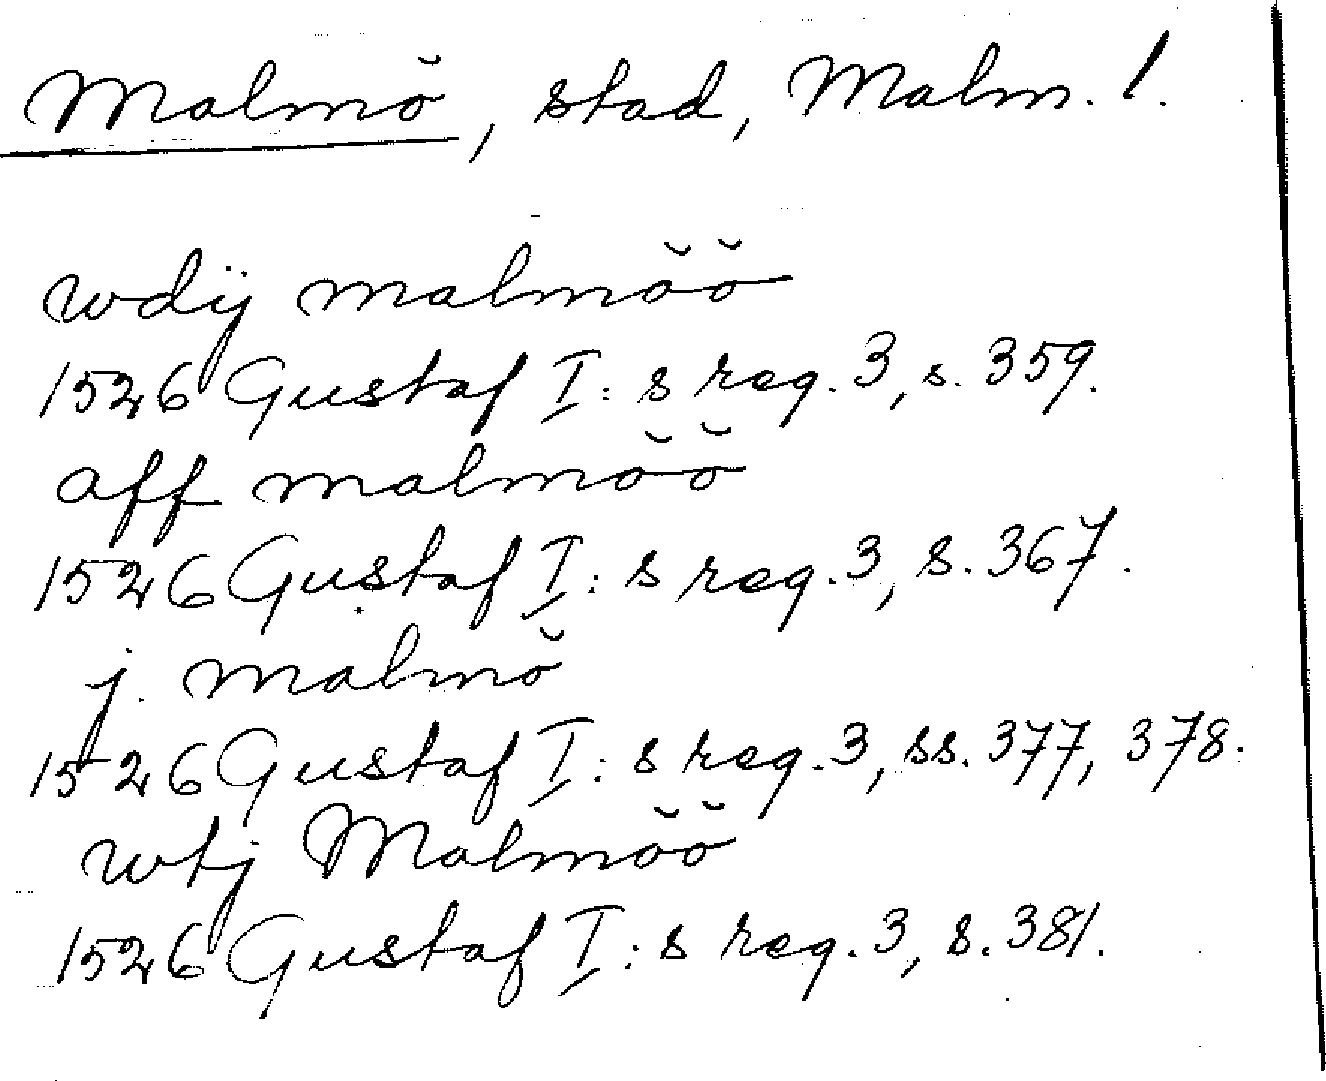 Malmö, stad, Malm. l.
wdij malmöö
1526 Gustaf I:s reg. 3, s. 359.
aff malmöö
1526 Gustaf I:s reg. 3, s. 367.
j. malmö
1526 Gustaf I:s reg. 3, ss. 377, 378.
wtj Malmöö
1526 Gustaf I:s reg. 3, s. 381.